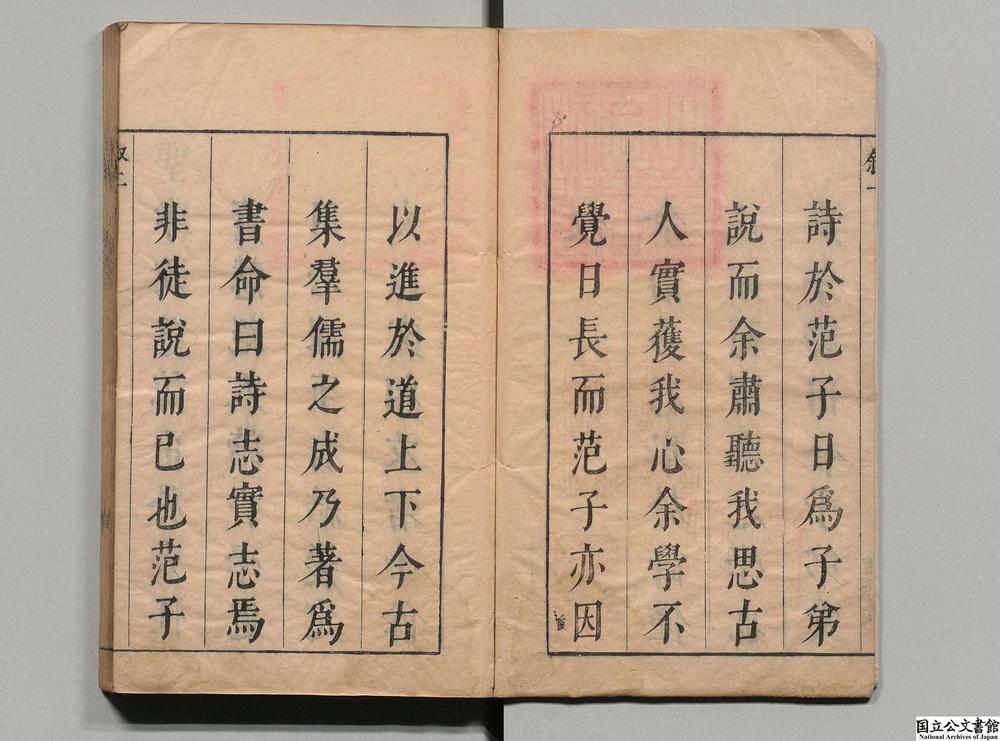 詩於范子日爲子弟
說而余肅聽我思古
人實蒦我心余學不
覺日長而范子亦因
以進於道上下今古
集羣儒之成乃著爲
書命曰詩志實志焉
非徒說而已也范子
敘一
敘二
国立公文書館
National Archives of Japan